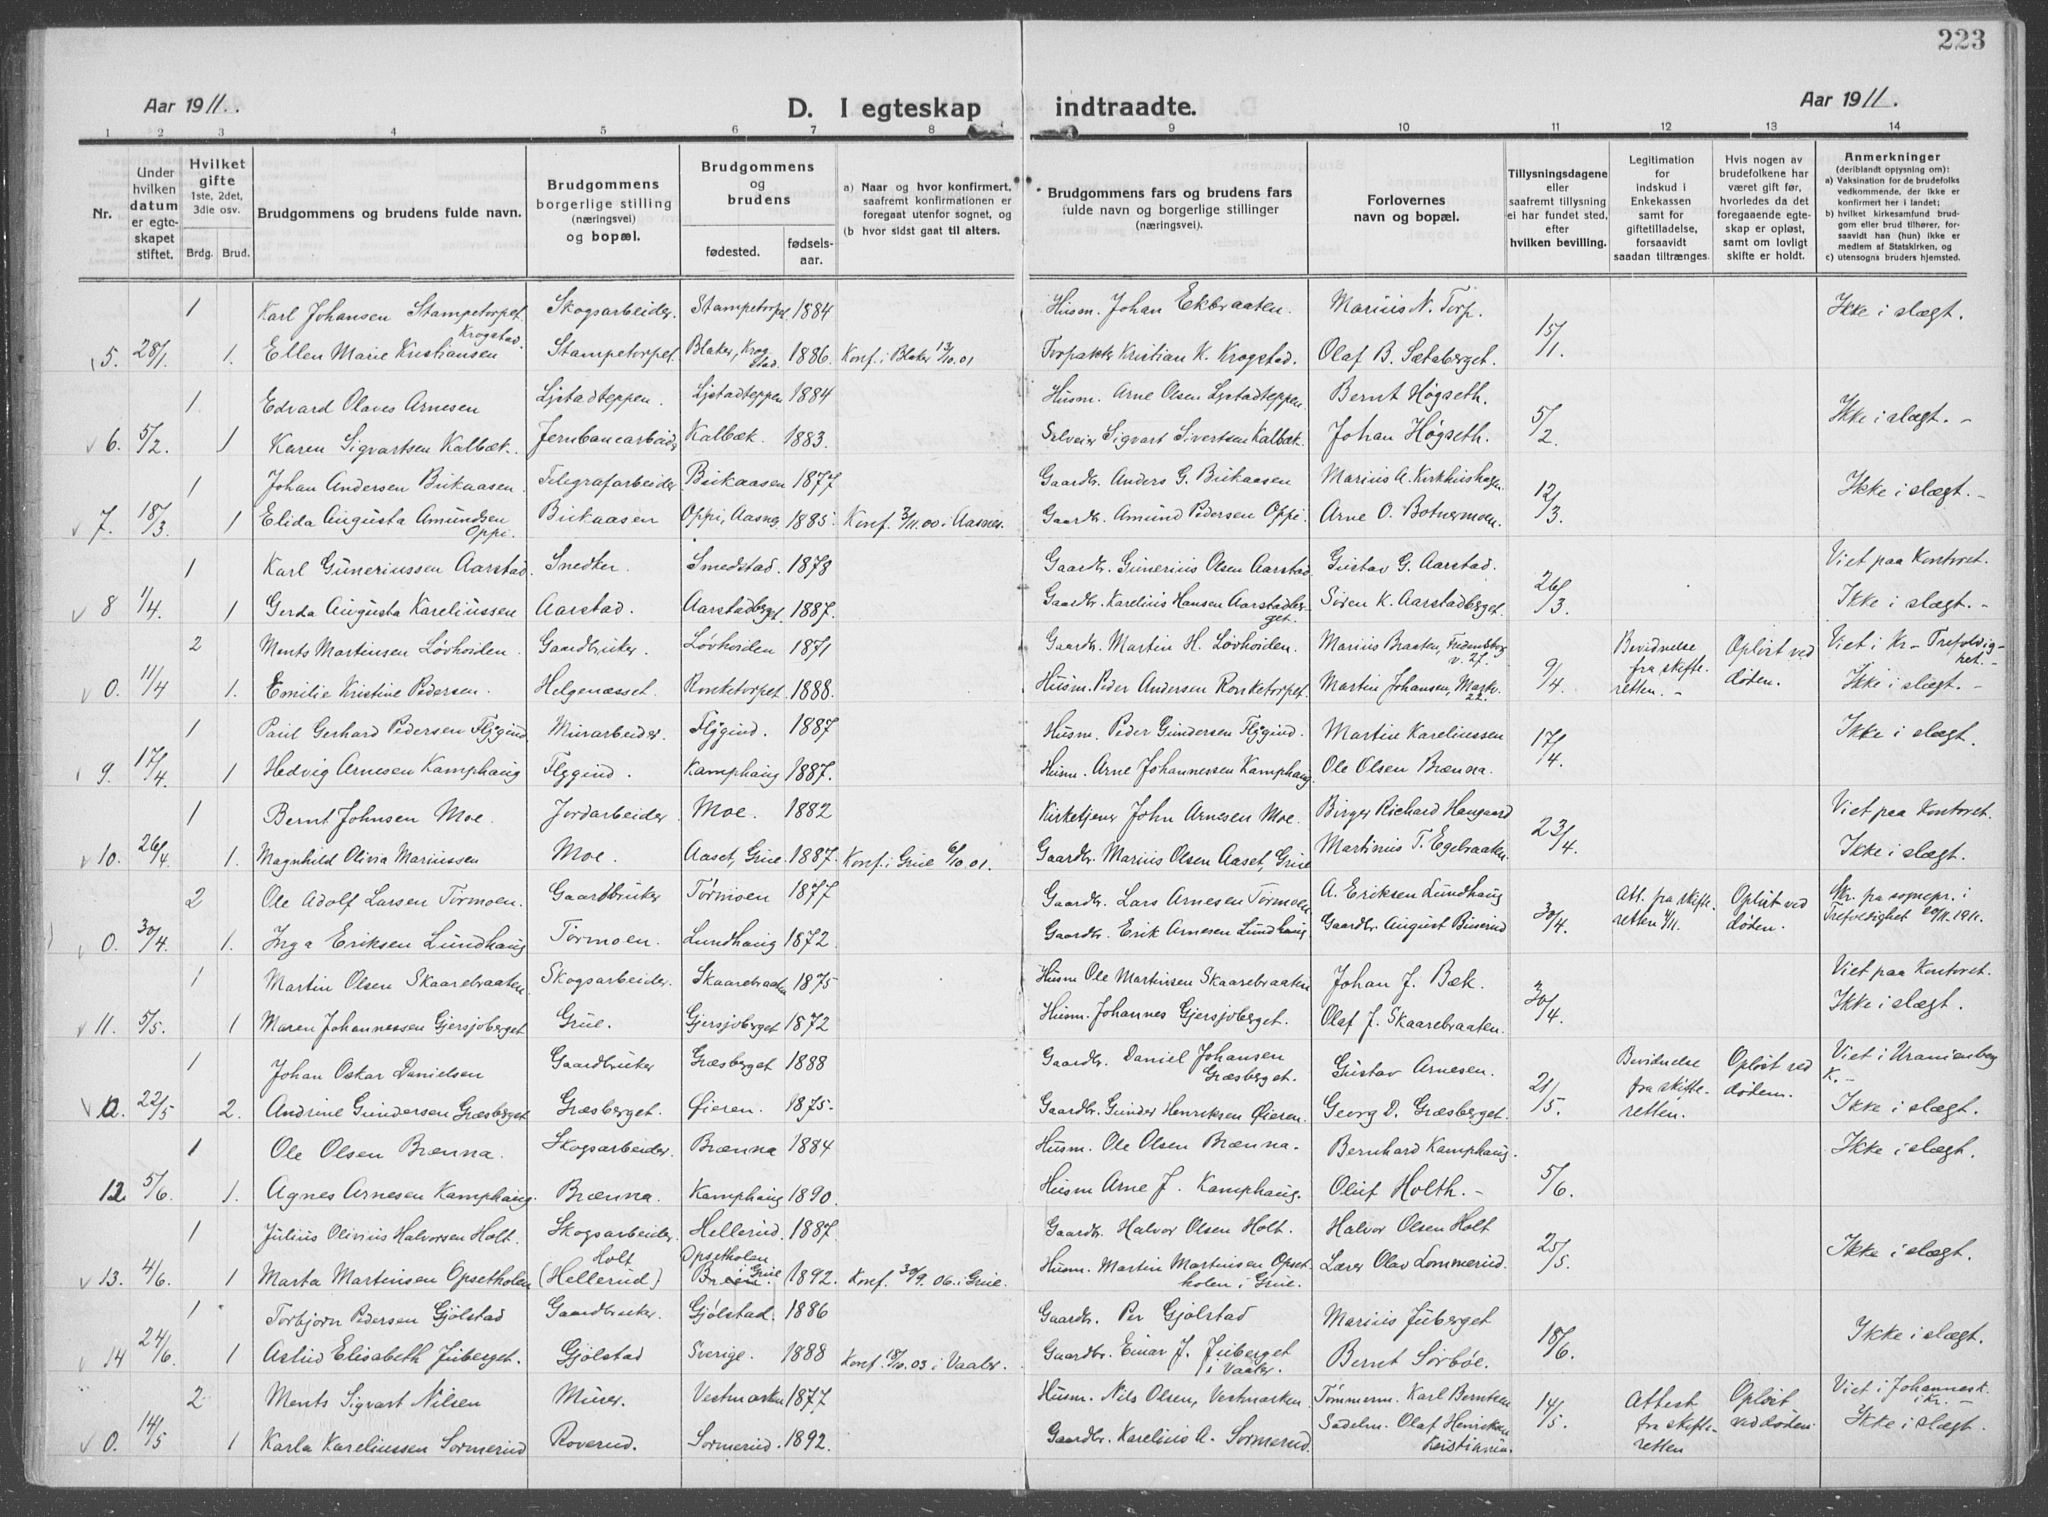 223
Aar 1911.
D. I egteskap indtraadte.
Aar 1911.
1 2 3 4 5 6 7 8 9 10 11 12 13 14
Nr.
Under hvilken datum er egteskapet stiftet.
Hvilket gifte 1ste, 2det, 3die osv.
Brdg. Brud.
Brudgommens og brudens fulde navn.
Brudgommens borgerlige stilling (næringsvei) og bopæl.
Brudgommens og brudens
fødested. fødselsaar.
a) Naar og hvor konfirmert, saafremt konfirmationen er foregaat utenfor sognet, og
(b hvor sidst gaat til alters.
Brudgommens fars og brudens fars fulde navn og borgerlige stillinger (næringsvei).
Forlovernes navn og bopæl.
Tillysningsdagene eller saafremt tillysning ei har fundet sted, efter hvilken bevilling.
Legitimation for indskud i Enkekassen samt for giftetilladelse, forsaavidt saadan tiltrænges.
Hvis nogen av brudefolkene har været gift før, hvorledes da det foregaaende egteskap er opløst, samt om lovlig skifte er holdt.
Anmerkninger (deriblandt oplysning om):
a) Vaksination for de brudefolks vedkommende, der ikke er konfirmert her i landet;
b) hvilket kirkesamfund brudgom eller brud tilhører, forsaavidt han (hun) ikke er medlem af Statskirken, og
c) utensogns bruders hjemsted.
1 Karl Johansen Stampetorpet. Skogsarbeider. Stampetorpet. 1884 Husm. Johan Ekbraaten. Marius N. Torp. 15/1. Ikke i slægt.
5. 28/1. 1. Ellen Marie Kristiansen Krogstad. Stampetorpet. Blaker, Krogstad. 1886. Konf. i Blaker 13/10.01 Kristian K. Krogstad. Olaf B. Sætaberget.
1 Edvard Olaves Arnesen Ljstadteppen. Ljstadteppen 1884 Husm. Arne Olsen Ljstadteppen. Bernt Høgseth. 5/2. Ikke i slægt. -
6. 5/2. 1 Karen Sigvartsen Kalbæk. Jernbanearbeider Kalbæk. 1883. Selveier Sigvart Sivertsen Kalbæk. Johan Høgseth.
1 Johan Andersen Bukaasen. Telegrafarbeider Bukaasen 1877 Gaardbr. Anders G. Bukaasen Marius A. Kirkhushagen 12/3. Ikke i slægt. -
7. 18/3. 1 Elida Augusta Amundsen Oppi. Bukaasen Oppi, Aasnes 1885. Konf. 3/11.00 i Aasnes. Gaardbr. Amund Pedersen Oppi. Arne O. Botnermoen.
1 Karl Guneriussen Aarstad. Snedker. Smedstad. 1878 Gaardbr. Gunerius Olsen Aarstad Gustav G. Aarstad. 26/3. Viet paa Kontoret.
8 1/4. 1 Gerda Augusta Kareliussen Aarstad. Aarstadberget. 1887. Gaardbr. Karelius Hansen Aarstadberget. Søren K. Aarstadberget. Ikke i slægt. -
2 Ments Martinsen Løvhoiden. Gaardbruker. Løvhoiden 1871 Gaardbr. Martin H. Løvhoiden. Marius Braaten, Fredensborg v. 27. 9/4. Bevidnelse fra skifteretten. - Opløst ved døden. Viet i Kr- Trefoldighet. -
0. 11/4 1. Emilie Kristine Pedersen. Helgenæsset. Ronketorpet 1888. Husm. Peder Andersen Ronketorpet. Martin Johansen, Markv. 22. Ikke i slægt. -
1 Paul Gerhard Pedersen Flygind. Murarbeider. Flygind. 1887 Husm. Peder Gundersen Flygind. Martin Kareliussen 17/4. Ikke i slægt.
9. 17/4. 1 Hedvig Arnesen Kamphaug Flygind. Kamphaug 1887. Husm. Arne Johannessen Kamphaug. Ole Olsen Brænna.
1 Bernt Johnsen Moe. Jordarbeider. Moe. 1882 Kirketjener John Arnesen Moe. Birger Richard Haugaard 23/4. Viet paa Kontoret.
10. 26/4. 1. Magnhild Olivia Mariussen Moe. Aaset, Grue. 1887. Konf. i Grue 6/10.01. Gaardbr. Marius Olsen Aaset, Grue Martinus T. Egebraaten. Ikke i slægt.
2 Ole Adolf Larsen Tormoen. Gaardbruker Tørmoen 1877 Gaardbr. Lars Arnesen Tormoen. A. Eriksen Lundhaug 30/4. Att. fra skifteretten Opløst ved døden. Trefoldighet 1911.
0. 30/4. 1. Inga Eriksen Lundhaug Tormoen. Lundhaug 1872. Gaardbr. Erik Arnesen Lundhaug Gaardbr. August Buserud
1 Martin Olsen Skaarebraaten. Skogsarbeider. Skaarebraaten 1875 Husm Ole Martinsen Skaarebraaten Johan J. Bæk. 30/4. Viet paa Kontoret.
11. 5/5. 1 Maren Johannessen Gjersjoberget Grue. Gjersjoberget 1872 Husm. Johannes Gjersjoberget. Olaf J. Skaarebraaten. Ikke i slægt.
1 Johan Oskar Danielsen Gaardbruker Græsberget 1888 Gaardbr. Daniel Johansen Græsberget. Gustav Arnesen. 21/5. Bevidnelse fra skifteretten. Opløst ved døden. Viet i Uranienborg K. -
0. 22/5 2. Andrine Gundersen Græsberget Græsberget. Øieren. 1875. Gaardbr. Gunder Henriksen Øieren. Georg D. Græsberget. Ikke i slægt.
1 Ole Olsen Brænna. Skogsarbeider. Brænna 1884 Husm. Ole Olsen Brænna. Bernhard Kamphaug. 5/6. Ikke i slægt.
12 5/6. 1. Agnes Arnesen Kamphaug. Brænna. Kamphaug 1890. Husm Arne J. Kamphaug. Oluf Holth. -
1 Julius Olivius Halvorsen Holt. Skogsarbeider. Hellerud. 1887. Gaardbr. Halvor Olsen Holt. Halvor Olsen Holt 25/5. Ikke i slægt.
13. 4/6. 1 Marta Martinsen Opsetholen Holt (Hellerud) Opsetholen i Grue. 1892. Konf. 30/9. 06. i Grue. Husm. Martin Martinsen Opsetholen i Grue. Lærer Olav Lommerud.
1 Torbjørn Pedersen Gjølstad Gaardbruker. Gjølstad. 1886 Gaardbr. Per Gjølstad Marius Juberget 18/6. Ikke i slægt.
14 24/6. 1 Astrid Elisabeth Juberget. Gjølstad Sverige. 1888 Konf. 18/10.03 i Vaaler. Gaardbr. Einar J. Juberget i Vaaler. Bernt Sorbøe.
2 Ments Sigvart Nilsen Murer. Vestmarken 1877 Husm. Nils Olsen, Vestmarken Tømmerm. Karl Berntsen 14/5. Attest fra skifteretten Opløst ved døden. Viet i Johannes K. i Kr. -
0. 14/5 1 Karla Kareliussen Sormerud Roverud. Sormerud. 1892. Gaardbr. Karelius A. Sormerud. Sadelm. Olaf Henriksen Kristiania. Ikke i slægt.